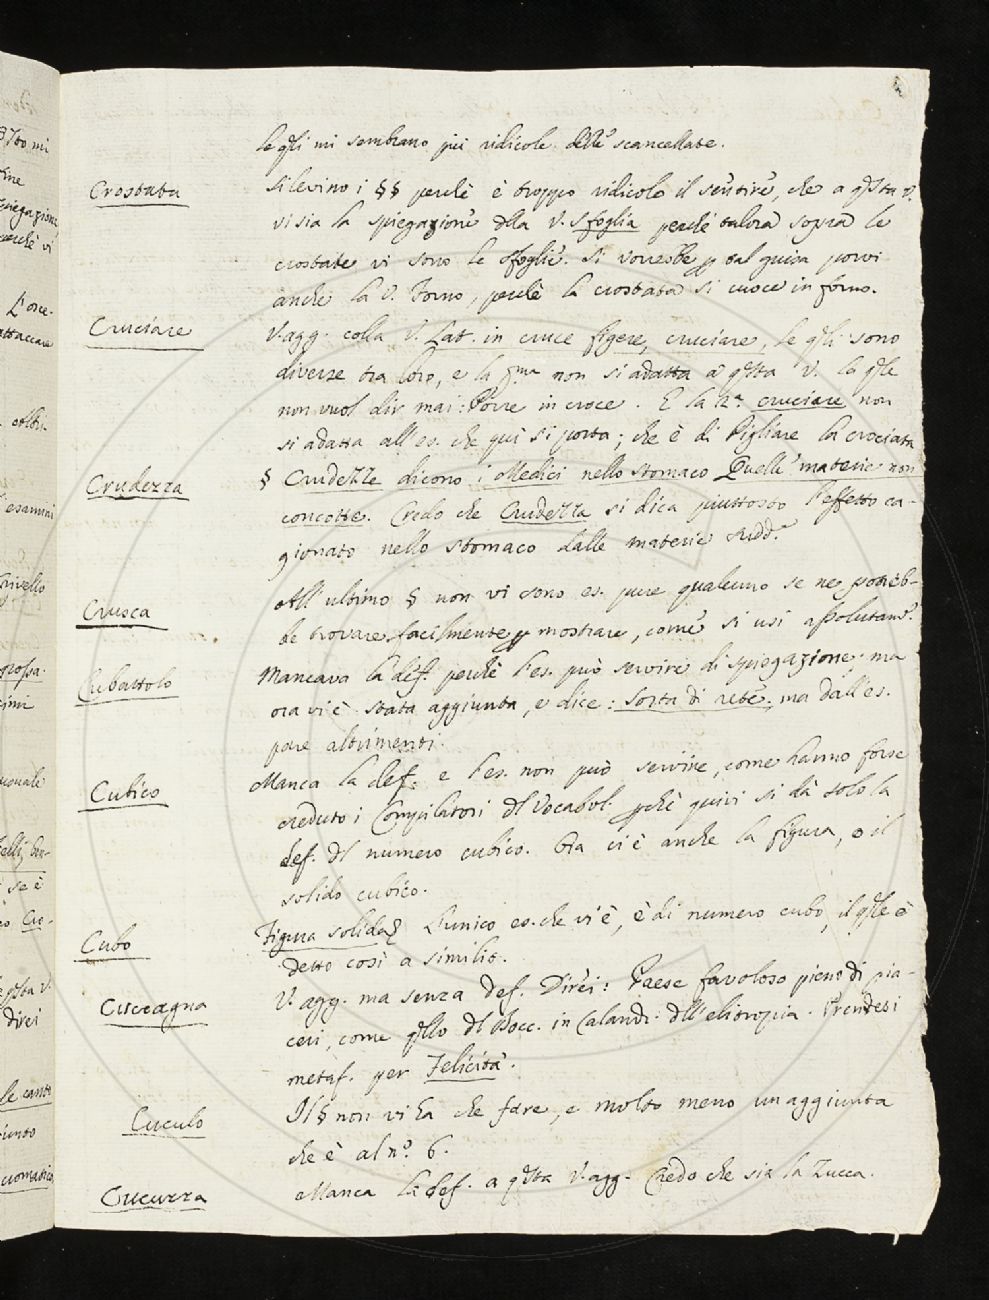 le qli mi sembrano più ridicole delle scancellate.
Crostata Si levino i §§ perchè è troppo ridicolo il sentire, che a qsta V.
vi sia la spiegazione dlla V. sfoglia perchè talora sopra le
crostate vi sono le sfoglie. Si vorrebbe p tal guisa porvi
anche la V. Forno, perchè la crostata si cuoce in forno.
Cruciare V. agg. colla V. Lat. in cruce figere, cruciare, le qli sono
diverse tra loro, e la pma non si adatta a qsta V. la qle
non vuol dir mai: Porre in croce. E la 2ª cruciare non
si adatta all'es. che qui si porta; che è di Pigliare la crociata
Crudezza § Crudezze dicono i Medici nello stomaco Quelle materie non
concotte. Credo che Crudezza si dica piuttosto l'effetto ca-
gionato nello stomaco dalle materie sudd.e
Crusca All'ultimo § non vi sono es. pure qualcuno se ne potreb-
be trovare facilmente p mostrare, come si usi assolutam.e
Cubattolo Mancava la def. perchè l'es. può servire di spiegazione; ma
ora vi è stata aggiunta, e dice: sorta di rete; ma dall'es.
pare altrimenti.
Cubico Manca la def. e l'es. non può servire, come hanno forse
creduto i Compilatori dl Vocabol. pchè quivi si dà solo la
def. dl numero cubico. Ora ci è anche la figura, o il
solido cubico.
Cubo Figura solida § L'unico es. che vi è, è di numero cubo, il qle è
detto così a simili.
Cuccagna V. agg. ma senza def. Direi: Paese favoloso pieno di pia-
ceri, come qllo dl Bocc. in Calandr. dll'elitropia. Prendesi
metaf. per Felicità.
Cuculo Il § non vi ha che fare, e molto meno un aggiunta
che è al n.º 6.
Cucuzza Manca la def. a qsta V. agg. Credo che sia la Zucca.